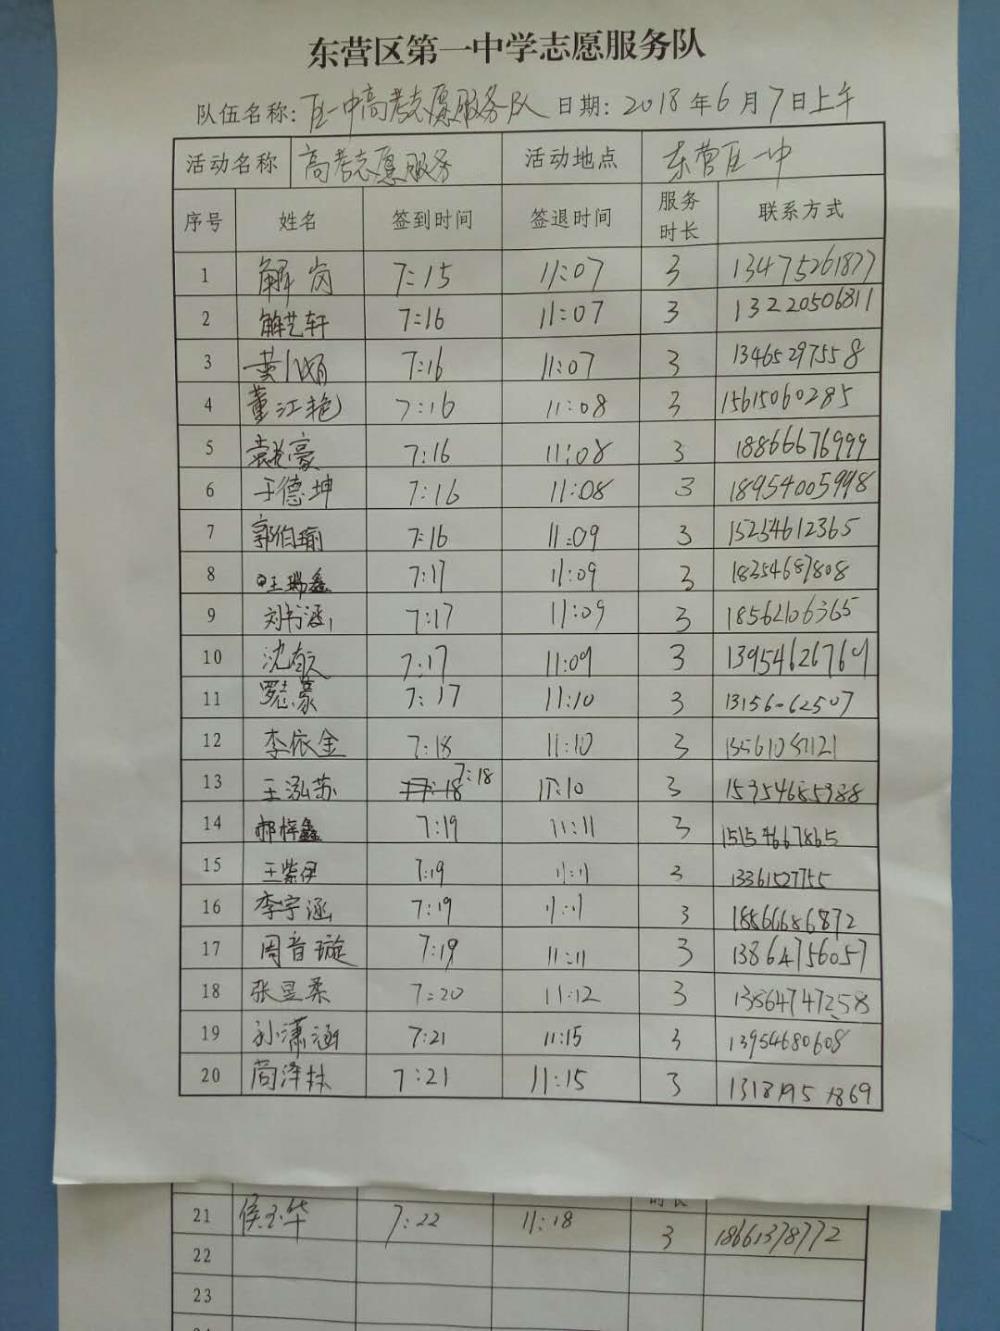 东营区第一中学志愿服务队
队伍名称: 区一中高考志愿服务队 日期: 2018年6月7日上午
活动名称 高考志愿服务 活动地点 东营区一中
序号 姓名 签到时间 签退时间 服务时长 联系方式
1 解岗 7:15 11:07 3 13475261877
2 解艺轩 7:16 11:07 3 13220506811
3 7:16 11:07 3 13465297558
4 董江艳 7:16 11:08 3 15615060285
5 7:16 11:08 3 18866676999
6 于德坤 7:16 11:08 3 18954005998
7 郭伯瑜 7:16 11:09 3 15254612365
8 汪瑞鑫 7:17 11:09 3 18354687808
9 刘书涵 7:17 11:09 3 18562106365
10 7:17 11:09 3
11 7:17 11:10 3
12 李依金 7:18 11:10 3
13 王泓苏 7:18 11:10 3 15954685988
14 郝梓鑫 7:19 11:11 3 15154667865
15 王紫伊 7:19 11:11 3 13361527755
16 李宇涵 7:19 11:11 3 18866686872
17 周音璇 7:19 11:11 3 13864756057
18 张昱柔 7:20 11:12 3 13864747258
19 孙潇涵 7:21 11:15 3 13954680608
20 7:21 11:15 3
时长
21 侯玉华 7:22 11:18 3 18661378772
22
23